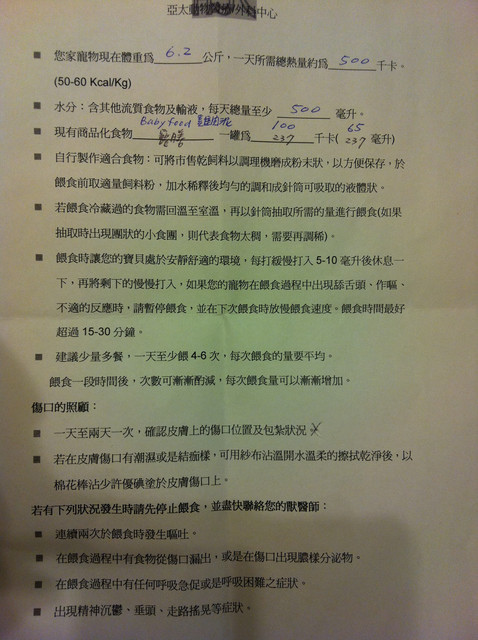 亞太動物醫療外科中心
■ 您家寵物現在體重為 6.2 公斤，一天所需總熱量約為 500 千卡.
(50-60 Kcal/Kg)
■ 水分：含其他流質食物及輸液，每天總量至少 500 毫升。
Baby food 100 65
■ 現有商品化食物 一罐為 237 千卡( 237 毫升)
■ 自行製作適合食物：可將市售乾飼料以調理機磨成粉末狀，以方便保存，於
餵食前取適量飼料粉，加水稀釋後均勻的調和成針筒可吸取的液體狀。
■ 若餵食冷藏過的食物需回溫至室溫，再以針筒抽取所需的量進行餵食(如果
抽取時出現團狀的小食團，則代表食物太稠，需要再調稀)。
■ 餵食時讓您的寶貝處於安靜舒適的環境，每打緩慢打入 5-10 毫升後休息一
下，再將剩下的慢慢打入，如果您的寵物在餵食過程中出現舔舌頭、作嘔、
不適的反應時，請暫停餵食，並在下次餵食時放慢餵食速度。餵食時間最好
超過 15-30 分鐘。
■ 建議少量多餐，一天至少餵 4-6 次，每次餵食的量要平均。
餵食一段時間後，次數可漸漸酌減，每次餵食量可以漸漸增加。
傷口的照顧：
■ 一天至兩天一次，確認皮膚上的傷口位置及包紮狀況
■ 若在皮膚傷口有潮濕或是結痂樣，可用紗布沾溫開水溫柔的擦拭乾淨後，以
棉花棒沾少許優碘塗於皮膚傷口上。
若有下列狀況發生時請先停止餵食，並盡快聯絡您的獸醫師：
■ 連續兩次於餵食時發生嘔吐。
■ 在餵食過程中有食物從傷口漏出，或是在傷口出現膿樣分泌物。
■ 在餵食過程中有任何呼吸急促或是呼吸困難之症狀。
■ 出現精神沉鬱、垂頭、走路搖晃等症狀。